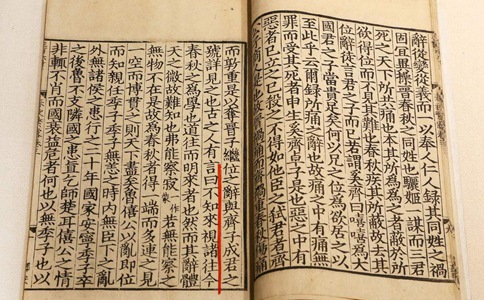 辭從變從義而一以奉人仁人録其同姓之禍
固宜異操晉春秋之同姓也驪姬一謀而三君
死之天下所共痛也本其所爲爲之者蔽於所
欲得位而不見其難也春秋疾其所蔽故去其
位辭徒言君之子而已若謂奚齊曰嘻嘻爲大
國君之子富貴足矣何以兄之位爲欲居之以
至此乎云爾録所痛之辭也故痛之中有痛無
罪而受其死者申生奚齊卓子是也惡之中有
惡者已立之已殺之不得如他臣之弑君者齊
公子商人是也故晉禍痛而齊禍重春秋傷痛
而敦重是以奪晉子繼位之辭與齊子成君之
號詳見之也古之人有言曰不知來視諸往今
春秋之爲學也道往而明來者也然而其辭體
天之微故難知也弗能察寂若無能察之
無物不在是故爲春秋者得一端而多連之見
一空而博貫之則天下盡矣魯僖公以亂即位
而知親任季子季子無恙之時内有臣下之亂
外無諸侯之患行之二十年國家安寧季子卒
之後魯不支隣國之患直乞師楚耳僖公之情
非輒不肖而國衰益危者何也以無季子也以